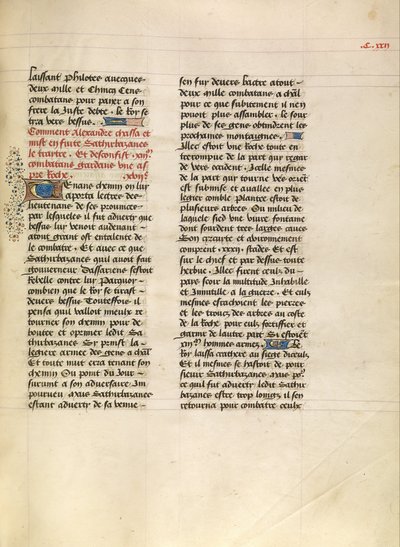 .C. xxii
laissant philotes avecques
deux mille et Chincq Cens
combatans pour payer a son
frere la Juste debte. le Roy se
tira vers bessus.
Comment Alexandre chassa et
mist en fuite Sathirbazanes
le tiartre. Et desconfist .xiii.
combatans gardans une as
pre Roche. .xviii.
En ce chemin on luy
aporta lettres des
lieutenans de ses prounces
par lesquelles il fut aduerty que
bessus luy venoit audeuant
atout grant et entalente de
le combatre. Et avec ce que
Sathirbazanes quil auoit fait
gouuerneur Dassariens sestoit
Rebelle contre luy Parquoy
combien que le Roy se tirast
deuers bessus Touteffois il
pensa quil valloit mieulx re
tourner son chemin pour de
bouter et oprimer ledit Sa
thirbazanes Sy prinst la
legiere armee des gens a cheual
Et toute nuit erra tenant son
chemin Ou point du Jour
suruint a son aduersaire Im
pourueu Mais Sathirbazanes
estant aduerty de sa venue
sen fuy deuers bactre atout
deux mille combatans a cheual
pour ce que subitement il nen
pouoit plus assambler. le sour
plus de ses gens obtindrent les
prochaines montaignes.
Illec estoit une Roche toute en
terrompue de la part qui regar
de vers occident. Jcelle mesmes
de la part qui tourne vers orient
est submise et auallee en plus
legier comble plantee estoit de
plusieurs arbres Ou milieu de
laquelle sied une viue fontaine
dont sourdent tres larges eaues
Son circuite et auironnement
comprent .xxxii. stades Et est
sur le chief et par dessus toute
herbue. Illec furent ceulx du
pays pour la multitude Inhabille
et Innutille a la guerre. Et eulx
mesmes estachoient les pierres
et les troncz des arbres au coste
de la Roche pour eulx fortifier et
garnir de lautre part Si estoient
.xiii. hommes armez. Le
Roy laissa crathere au siege diceulx
Et il mesmes se hastoit de pour
sieuir Sathirbazanes Mais por
ce quil fut aduerty ledit Sathir
bazanes estre trop loings, il sen
retourna pour combatre ceulx